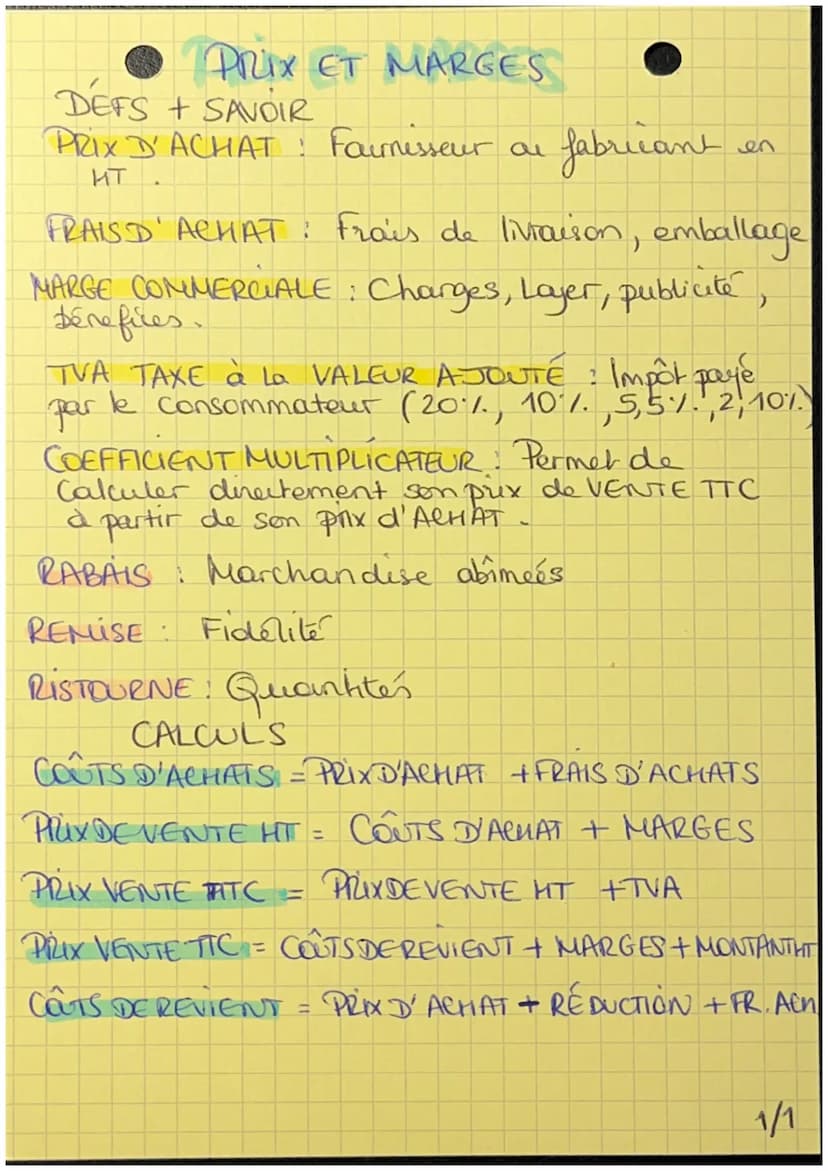 PRIX ET MARGES
DÉFS + SAVOIR
PRIX D'ACHAT : Fournisseur ou fabricant en
HT .
FRAIS D'ACHAT : Frais de livraison, emballage
MARGE COMMERCIALE : Charges, Loyer, publicité,
bénéfices.
TVA TAXE à La VALEUR AJOUTÉ : Impôt payé
par le consommateur (20%, 10%, 5,5%, 2,10%)
COEFFICIENT MULTIPLICATEUR : Permet de
Calculer directement son prix de VENTE TTC
à partir de son prix d'ACHAT.
RABAIS : Marchandise abîmeés
REMISE : Fidélité
RISTOURNE : Quantités
CALCULS
COÛTS D'ACHATS = PRIX D'ACHAT + FRAIS D'ACHATS
PRIX DE VENTE HT = COÛTS D'ACHAT + MARGES
PRIX VENTE TTC = PRIX DE VENTE HT + TVA
PRIX VENTE TTC = COÛTS DE REVIENT + MARGES + MONTANT HT
COÛTS DE REVIENT = PRIX D'ACHAT + RÉDUCTION + FR. ACH
1/1